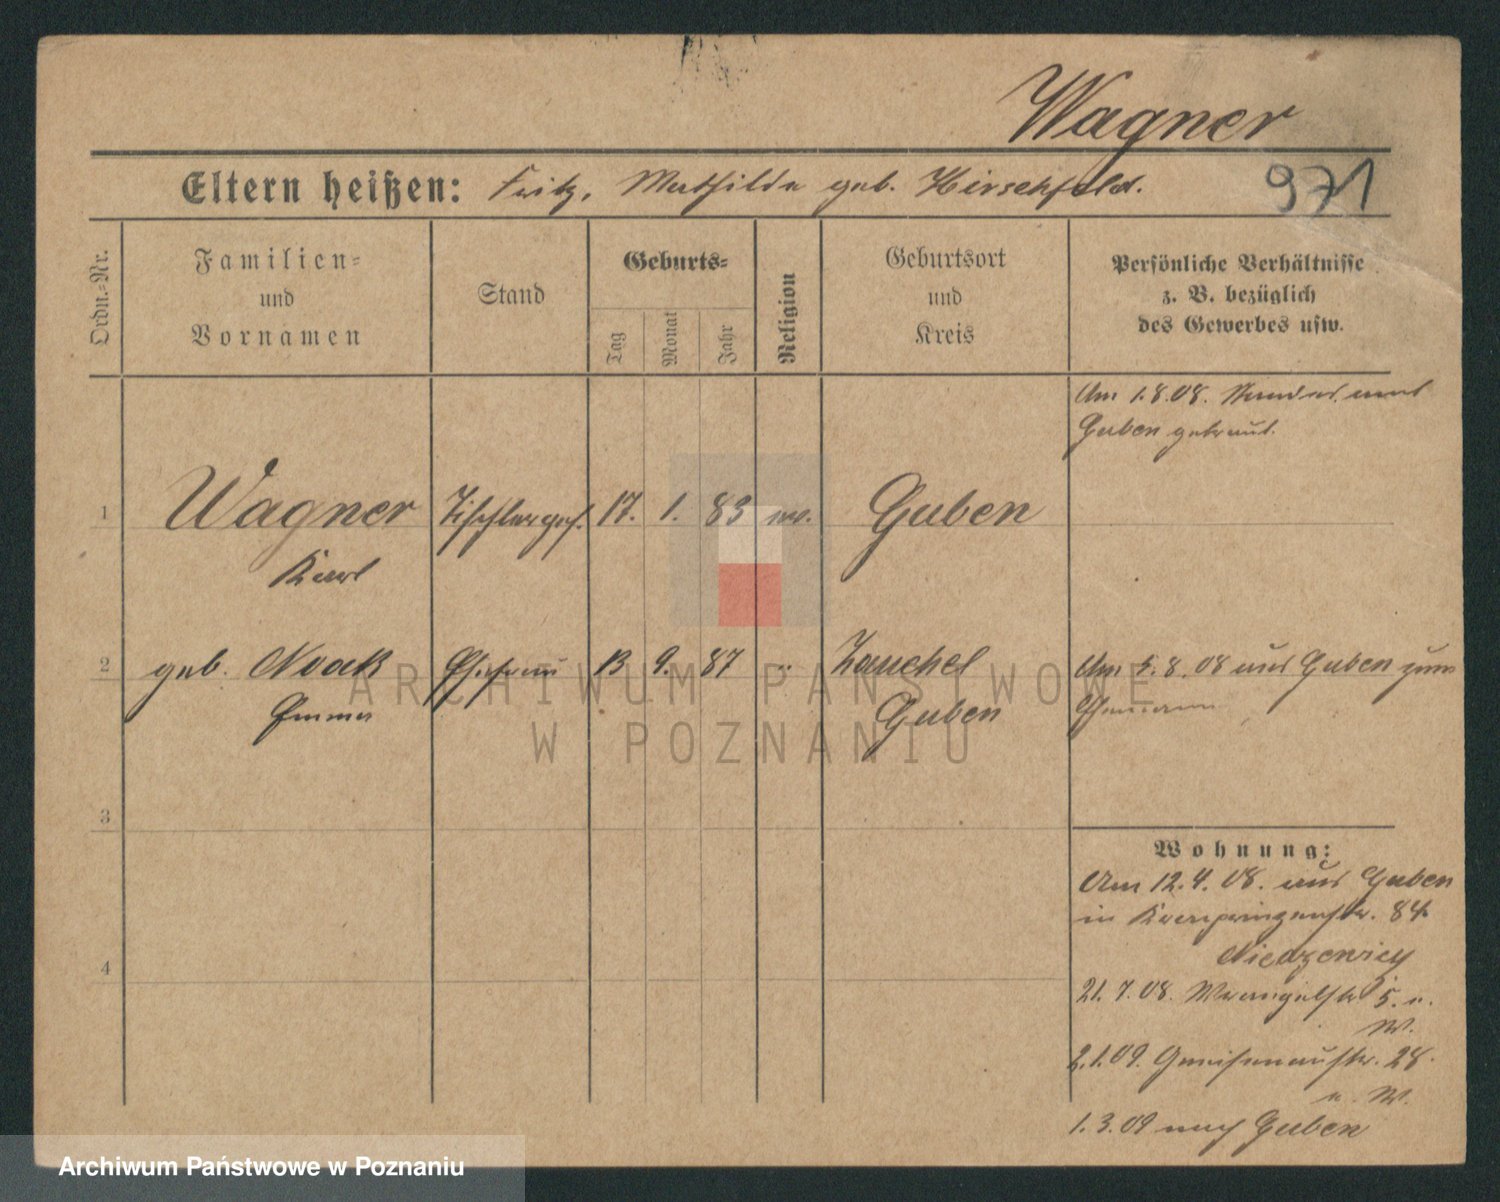 Wagner
Eltern heißen: Fritz, Mathilde geb. Hirschfeld.
971
Ordn.-Nr.
Familien-
und
Vornamen
Stand
Geburts-
Tag
Monat
Jahr
Religion
Geburtsort
und
Kreis
Persönliche Verhältnisse
z. B. bezüglich
des Gewerbes usw.
Am 1.8.08. Standesamt
Guben getraut.
1 Wagner Tischlerges. 17. 1. 83 ev. Guben
Karl
2 geb. Noak Ehefrau 13 9. 87 " Zauchel
Emma
Guben
Am 5.8.08 aus Guben zum
Ehemann
3
Wohnung:
Am 12.4.08. aus Guben
in Kronprinzenstr. 84
4
21.7.08. Wrangelstr 5. u.
W.
2.1.09. Gneisenaustr. 28.
u. W.
1.3.09 nach Guben
ARCHIWUM PAŃSTWOWE
W POZNANIU
Archiwum Państwowe w Poznaniu